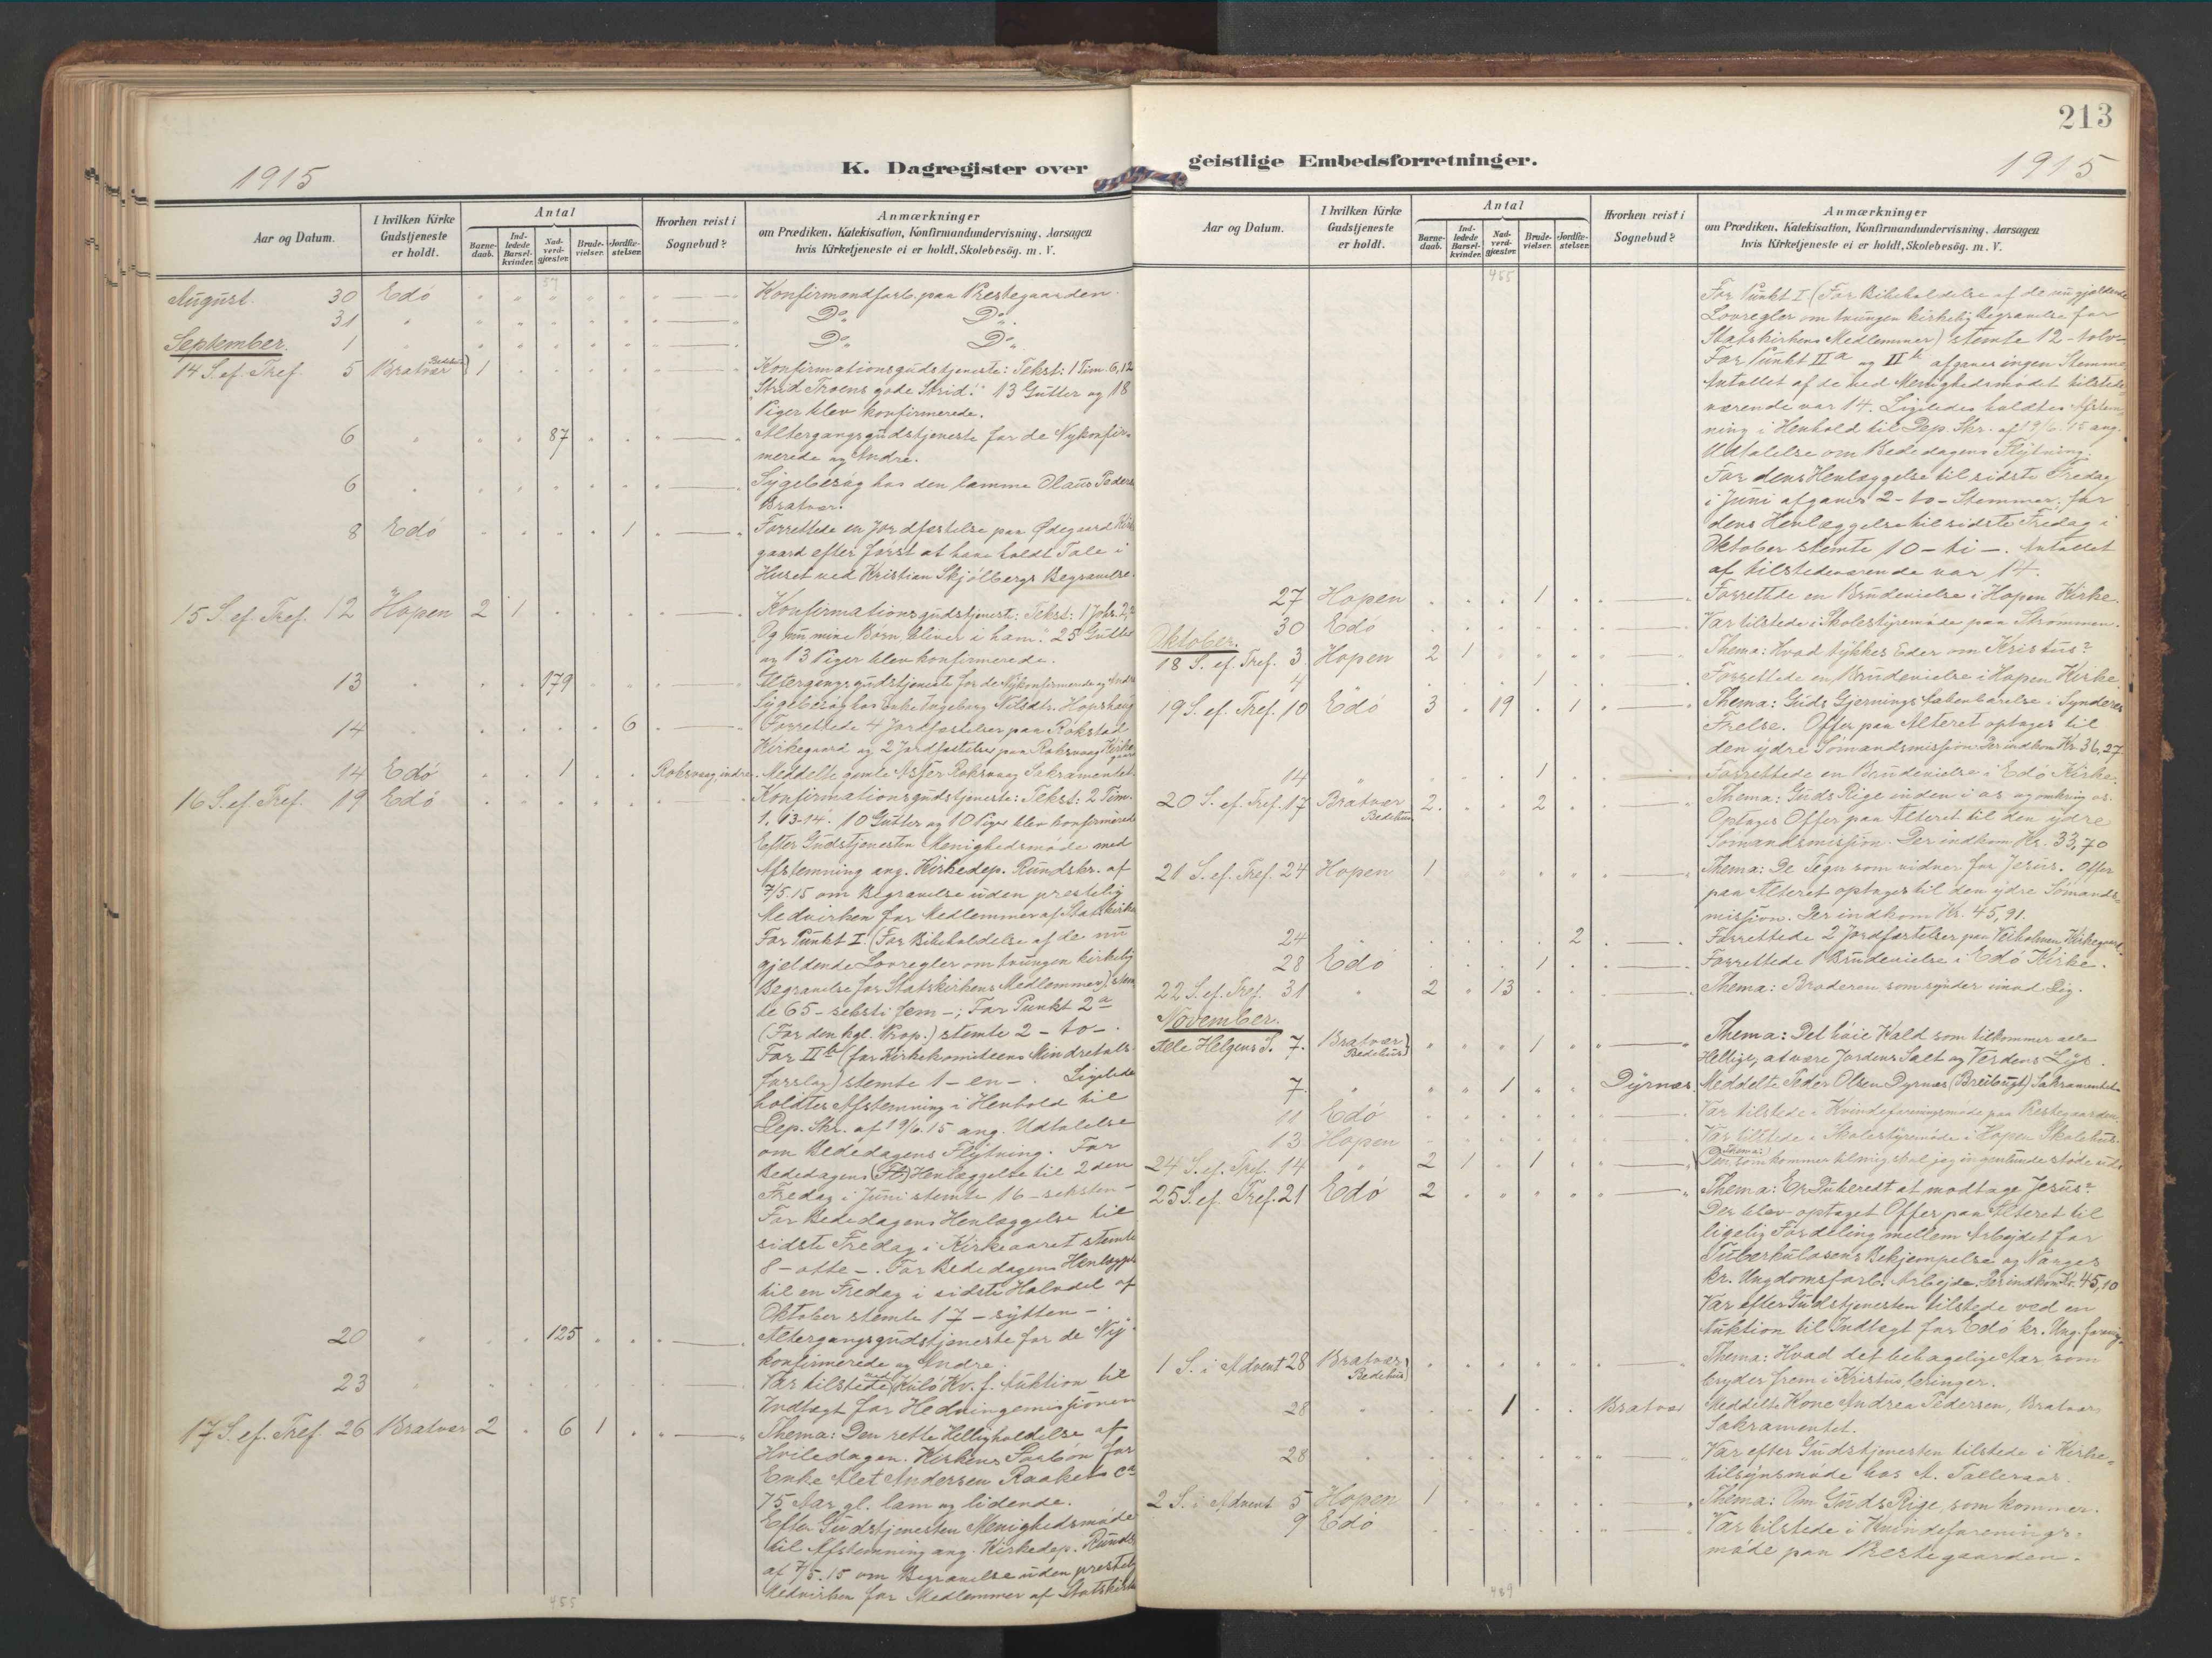 213
1915
K. Dagregister over geistlige Embedsforretninger.
1915
Aar og Datum.
I hvilken Kirke Gudstjeneste er holdt.
Antal
Barnedaab.
Indledede Barselkvinder.
Nadverdgjæster.
Brudevielser.
Jordfæstelser.
Hvorhen reist i Sognebud?
Anmærkninger
om Prædiken, Katekisation, Konfirmandundervisning. Aarsagen
hvis Kirketjeneste ei er holdt, Skolebesög. m. V.
87
August. 30 Edö Konfirmandforb. paa Prestegaarden.
31 Do. Do.
September. 1 Do. Do.
14 S. ef. Tref. 5 Bratvær Bedehus 1 Konfirmationsgudstjeneste: Tekst: 1 Tim. 6,12
"Strid Troens gode Strid!" 13 Gutter og 18
Piger blev konfirmerede.
6 87 Altergangsgudstjeneste for de Nykonfir-
merede og Andre.
6 Sygebesög hos den lamme Olaus Peders.
Bratvær.
8 Edö 1 Forrettede en Jordfæstelse paa Ødegaard Kirke
gaard efter först at have holdt Tale i
Huset ved Kristian Skjölbergs Begravelse.
15 S. ef. Tref. 12 Hopen 2 1 Konfirmationsgudstjeneste: Tekst: 1 Joh. 2,
Og nu mine Börn, bliver i ham: 25 Gutter
og 13 Piger blev konfirmerede.
13 179 Altergangsgudstjeneste for de Nykonfirmerede og Andre
Sygebesög hos Enke Ingeborg Nilsdtr. Hopshaug
14 6 Forrettede 4 Jordfæstelser paa Rokstad
Kirkegaard og 2 Jordfæstelser paa Roksvaag Kirkegaard
14 Edö 1 Roksvaag, indre. Meddelte gamle Roksvaag Sakramentet.
16 S. ef. Tref. 19 Edö Konfirmationsgudstjeneste: Tekst: 2 Tim.
1, 13-14. 10 Gutter og 10 Piger blev konfirmered
Efter Gudstjenesten Menighedsmöde med
Afstemning ang. Kirkedep. Rundskr. af
7/5.15 om Begravelse uden prestelig
Medvirken for Medlemmer af Statskirken
For Punkt I. (For Bibeholdelse af de nu
gjældende Lovregler om tvungen kirkelig
Begravelse for Statskirkens Medlemmer) stem
te 65 - seksti fem -; For Punkt 2a
(For den kgl. Prop.) stemte 2 - to -.
For IIb (for Kirkekomiteens Mindretals
forslag) stemte 1 - en -. Ligeledes
holdtes Afstemning i Henhold til
Dep. Skr. af 19/6.15 ang. Udtalelse
om Bededagens Flytning. For
Bededagens Henlæggelse til 2den
Fredag i Juni stemte 16 - seksten -
For Bededagens Henlæggelse til
sidste Fredag i Kirkeaaret stemte
8 - otte -. For Bededagens Henlæggelse
til en Fredag i sidste Halvdel af
Oktober stemte 17 - sytten -.
20 125 Altergangsgudstjeneste for de Ny-
konfirmerede og Andre.
23 Var tilstede ved Kulö Kv. f. Auktion til
Indtægt for Hedningemissionen
17 S. ef. Tref. 26 Bratvær 2 6 1 Thema: Den rette Helligholdelse af
Hviledagen. Kirkens Forbön for
Enke Alet Andersen Raaket ca
75 Aar gl. lam og lidende.
Efter Gudstjenesten Menighedsmöde
til Afstemning ang. Kirkedep. Rundsk.
af 7/5.15 om Begravelse uden prestelig
Medvirken for Medlemmer af Statskirken
455
Aar og Datum.
I hvilken Kirke Gudstjeneste er holdt.
Antal
Barnedaab.
Indledede Barselkvinder.
Nadverdgjæster.
Brudevielser.
Jordfæstelser.
Hvorhen reist i Sognebud?
Anmærkninger
om Prædiken, Katekisation, Konfirmandundervisning. Aarsagen
hvis Kirketjeneste ei er holdt, Skolebesög. m. V.
455
For Punkt I (For Bibeholdelse af de nugjældende
Lovregler om tvungen kirkelig Begravelse for
Statskirkens Medlemmer) stemte 12 - tolv -
For Punkt IIa og IIb afgaves ingen Stemme
Antallet af de ved Menighedsmödet tilstede-
værende var 14. Ligeledes holdtes Afstem-
ning i Henhold til Dep. Skr. af 19/6.15 ang.
Udtalelse om Bededagens Flytning.
For dens Henlæggelse til sidste Fredag
i Juni afgaves 2 - to - Stemmer; for
dens Henlæggelse til sidste Fredag i
Oktober stemte 10 - ti -. Antallet
af tilstedeværende var 14.
27 Hopen 1 Forrettede en Brudevielse i Hopen Kirke.
30 Edö Var tilstede i Skolestyremöde paa Strömmen.
Oktober.
18 S. ef. Tref. 3 Hopen 2 1 Thema: Hvad tykkes Eder om Kristus?
4 1 Forrettede en Brudevielse i Hopen Kirke
19 S. ef. Tref. 10 Edö 3 19 1 Thema: Guds Gjernings Aabenbarelse i Synderes
Frelse. Offer paa Alteret optoges til
den ydre Sömandsmission. Der indkom Kr. 36,27
14 1 Forrettede en Brudevielse i Edö Kirke.
20 S. ef. Tref. 17 Bratvær Bedehus 2 2 Thema: Guds Rige inden i os og omkring os.
Optoges Offer paa Alteret til den ydre
Sömandsmission. Der indkom Kr. 33,70
21 S. ef. Tref. 24 Hopen 1 Thema: De Tegn som vidner for Jesus. Offer
paa Alteret optoges til den ydre Sömands-
mission. Der indkom Kr. 45,91.
24 2 Forrettede 2 Jordfæstelser paa Veiholmen Kirkegaard.
28 Edö 1 Forrettede 1 Brudevielse i Edö Kirke.
22 S. ef. Tref. 31 2 13 Thema: Broderen, som synder imod Dig.
November.
Alle Helgens S. 7. Bratvær Bedehus 1 Thema: Det höie Kald som tilkommer alle
Hellige, at være Jordens Salt og Verdens Lys.
7. 1 Dyrnæs Meddelte Peder Olsen Dyrnæs (Breibugt) Sakramentet
11 Edö Var tilstede i Kvindeforeningsmöde paa Prestegaarden.
13 Hopen Var tilstede i Skolestyremöde i Hopen Skolehus.
24 S. ef. Tref. 14 2 1 1 (Thema:) Den, som kommer til mig skal jeg ingenlunde støde ud
25 S. ef. Tref. 21 Edö 2 Thema: Er Du beredt at modtage Jesus?
Der blev optaget Offer paa Alteret til
ligelig Fordeling mellem Arbejdet for
Tuberkulosens Bekjempelse og Norges
kr. Ungdomsforb. Arbejde. Der indkom Kr. 45,10
Var efter Gudstjenesten tilstede ved en
Auktion til Indtægt for Edö kr. Ung. forening.
1 S. i Advent 28 Bratvær Bedehus Thema: Hvad det behagelige Aar som
bryder frem i Kristus bringer.
28 1 Bratvær Meddelte Kone Andrea Pedersen, Bratvær
Sakramentet.
28 Var efter Gudstjenesten tilstede i Kirke-
tilsynsmöde hos A. Talleraas.
2 S. i Advent 5 Hopen 1 Thema: Om Guds Rige, som kommer.
9 Edö Var tilstede i Kvindeforenings-
möde paa Prestegaarden.
489